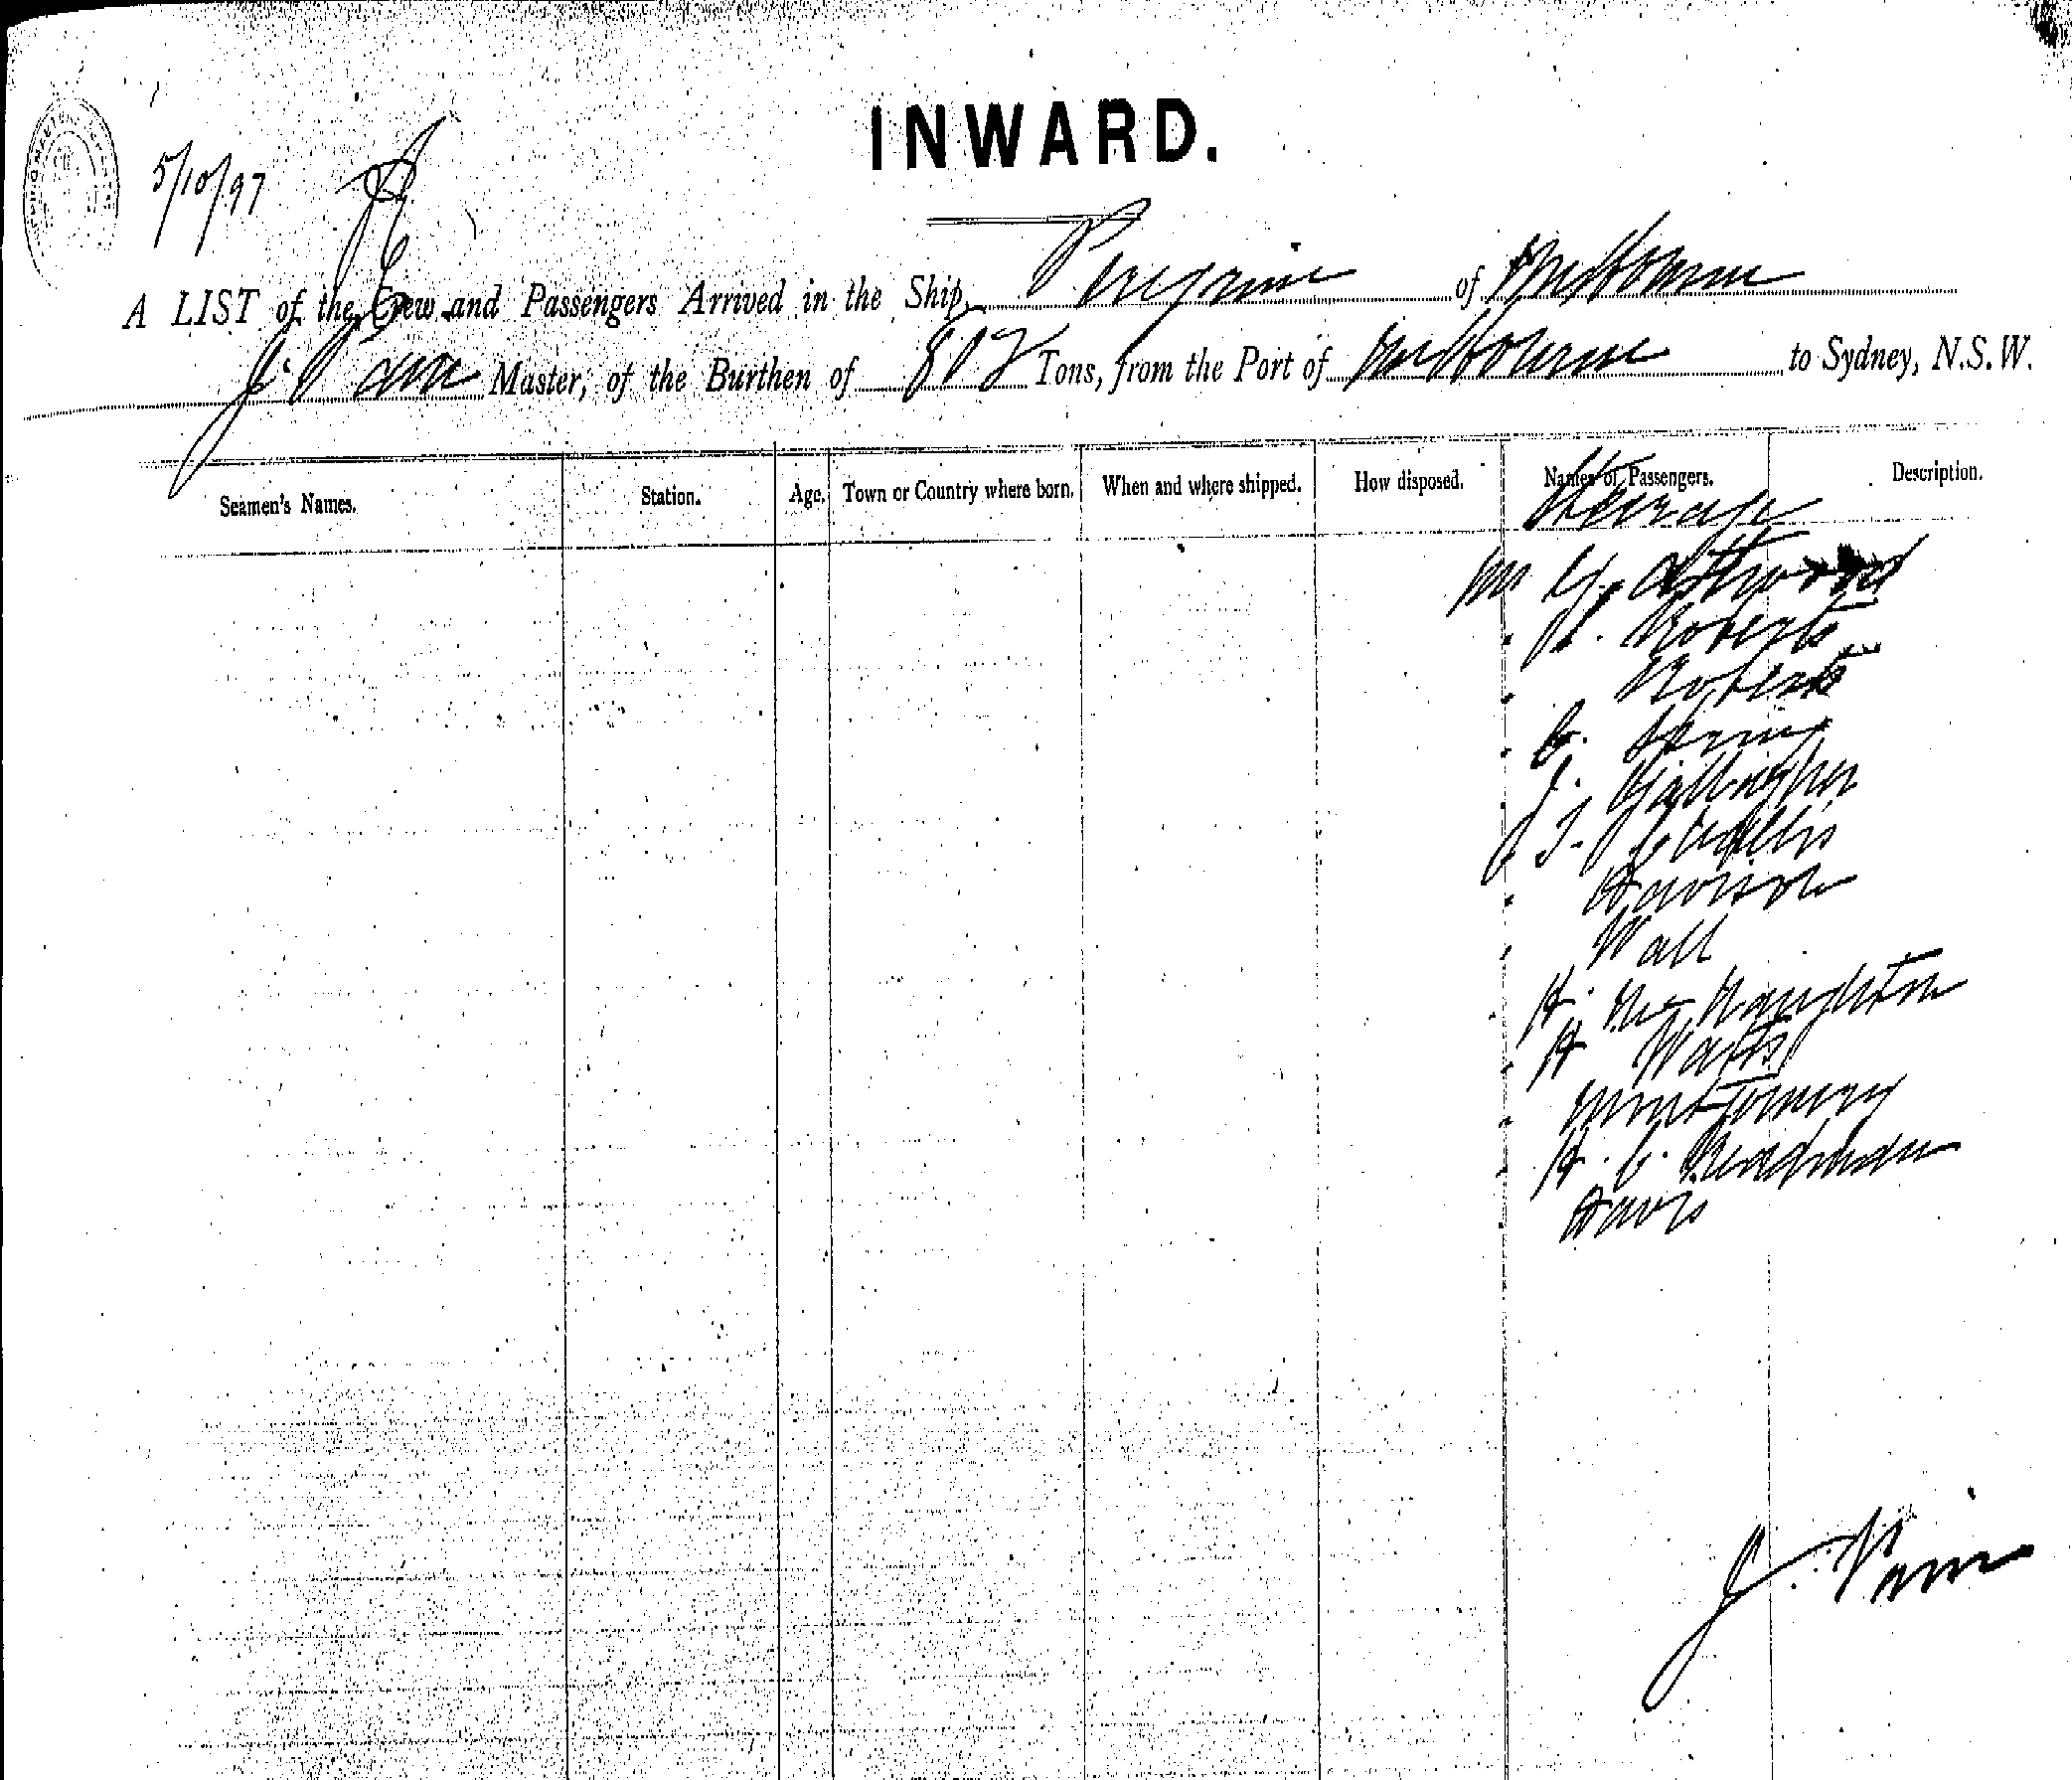 INWARD.
5/10/97
A LIST of the Crew and Passengers Arrived in the Ship, Peregrine of Melbourne
J. Pain Master, of the Burthen of 802 Tons, from the Port of Melbourne to Sydney, N.S.W.
Seamen's Names. Station. Age. Town or Country where born. When and where shipped. How disposed. Names of Passengers. Description.
Steerage
Mr G. Attwood
" J. Roberts
" Roberts
" G.
" J. Gallagher
" T.
" Davison
" Wall
" H. McNaughton
" H Watts
" Montgomery
" H. C. Meadman
" Davis
J. Pain